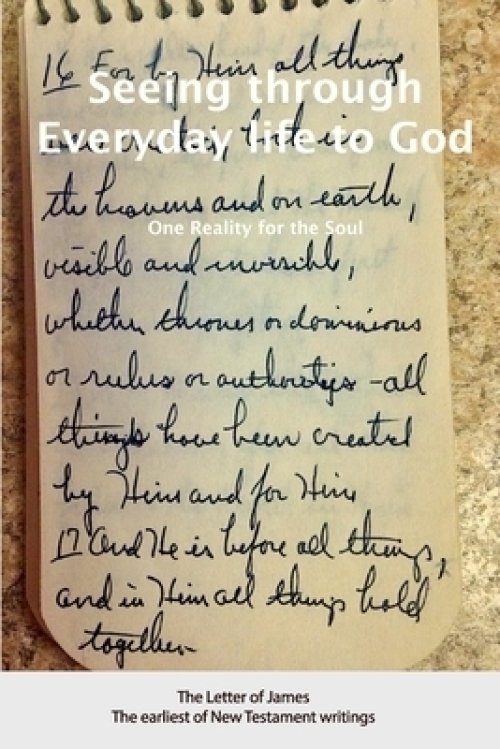 16 For by Him all things
Seeing through
were created, both in
Everyday life to God
the heavens and on earth,
One Reality for the Soul
visible and invisible,
whether thrones or dominions
or rulers or authorities - all
things have been created
by Him and for Him
17 And He is before all things,
and in Him all things hold
together.
The Letter of James
The earliest of New Testament writings